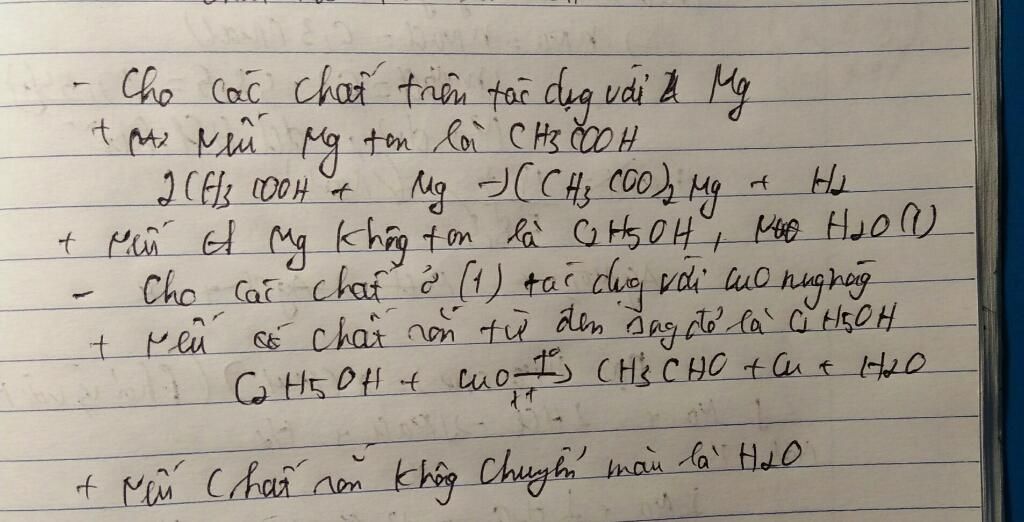 - Cho các chất trên tác dụg với Mg
+ Nếu Mg tan là CH3COOH
2CH3COOH + Mg → (CH3COO)2Mg + H2
+ Nếu Mg khôg tan là C2H5OH, H2O (1)
- Cho các chất ở (1) tác dụg với CuO nug nóg
+ Nếu chất rắn từ đen sag đỏ là C2H5OH
C2H5OH + CuO t° → CH3CHO + Cu + H2O
+ Nếu chất rắn khôg chuyển màu là H2O